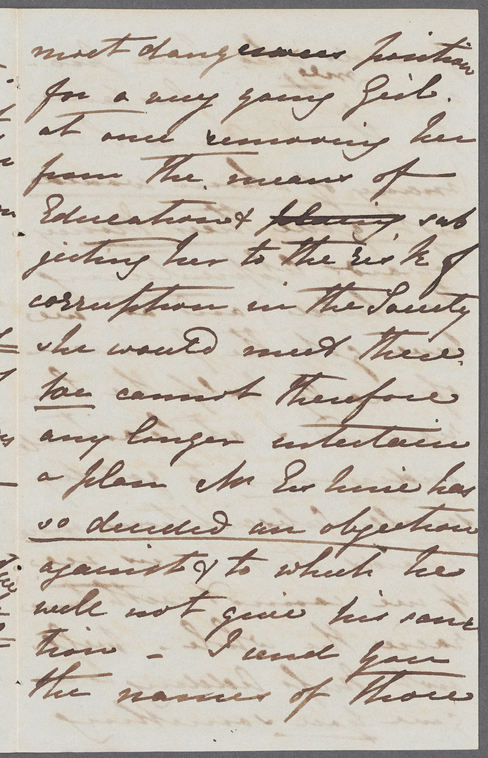 most dangerous position
for a very young Girl.
at once removing her
from the means of
Education & placing sub
jecting her to the risk of
corruption in the Society
she would meet there.
We cannot therefore
any longer entertain
a plan Mr Erskine has
so decided an objection
against & to which he
will not give his sanc
tion - I send you
the names of those